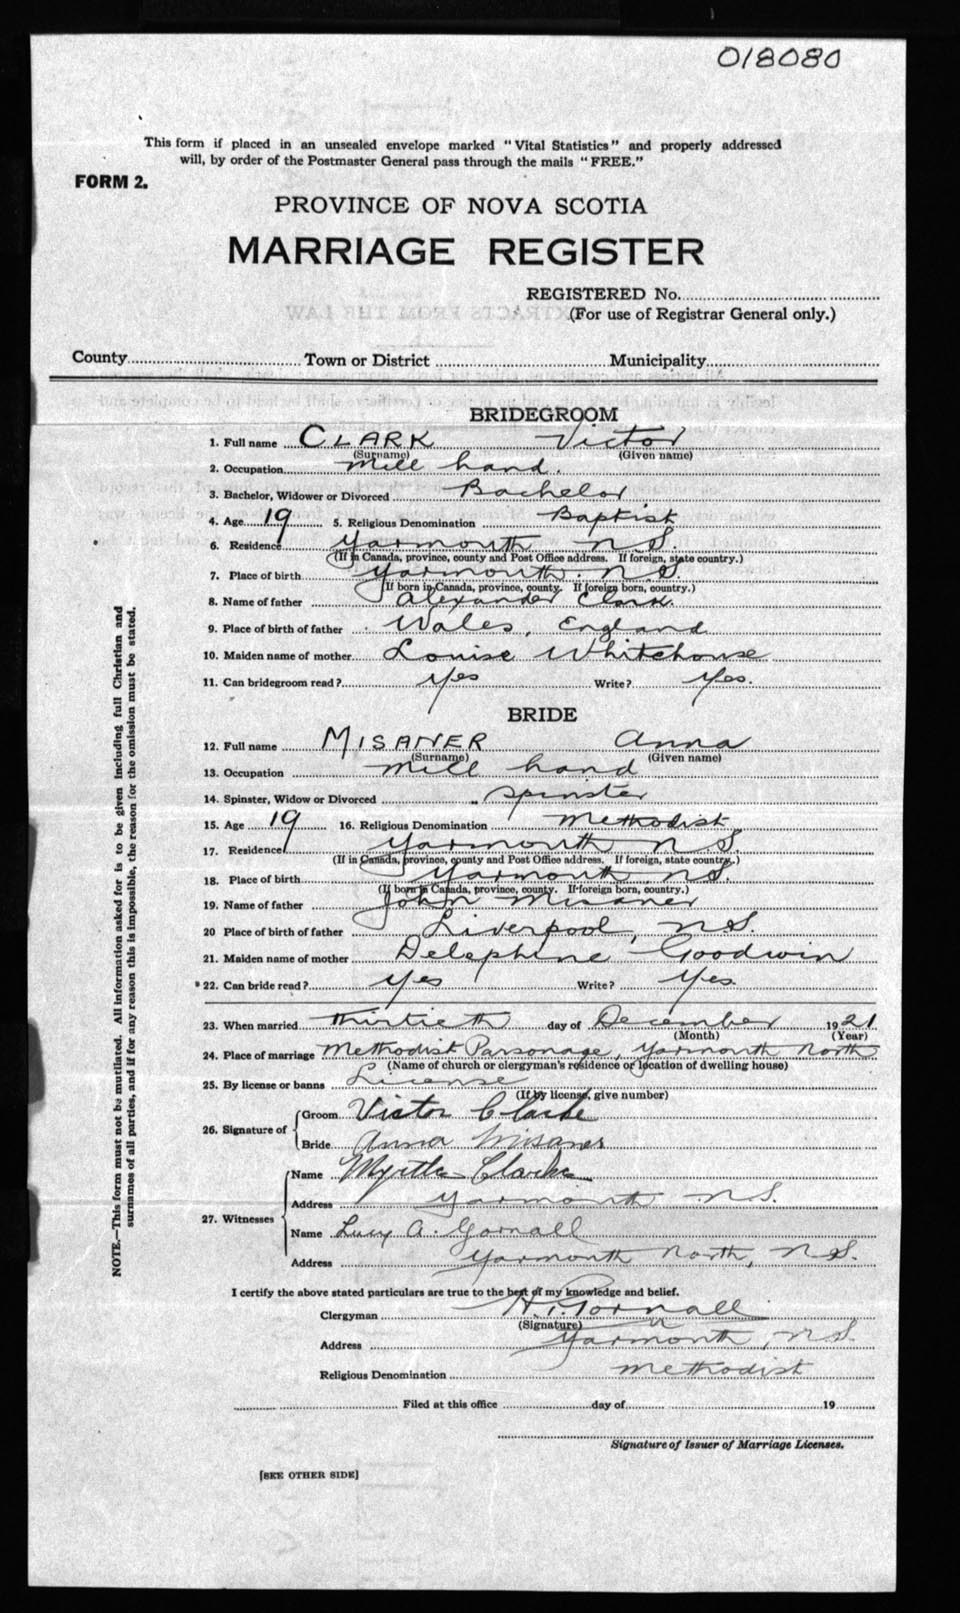 018080
This form if placed in an unsealed envelope marked "Vital Statistics" and properly addressed
will, by order of the Postmaster General pass through the mails "FREE."
FORM 2.
PROVINCE OF NOVA SCOTIA
MARRIAGE REGISTER
REGISTERED No.
(For use of Registrar General only.)
County Town or District Municipality
BRIDEGROOM
1. Full name CLARK Victor
(Surname) (Given name)
2. Occupation mill hand.
3. Bachelor, Widower or Divorced Bachelor
4. Age 19 5. Religious Denomination Baptist
6. Residence Yarmouth N.S.
(If in Canada, province, county and Post Office address. If foreign, state country.)
7. Place of birth Yarmouth. N.S.
(If born in Canada, province, county. If foreign born, country.)
8. Name of father Alexander Clark.
9. Place of birth of father Wales, England
10. Maiden name of mother Louise Whitehouse
11. Can bridegroom read? Yes Write? Yes.
BRIDE
12. Full name MISANER Anna
(Surname) (Given name)
13. Occupation mill hand
14. Spinster, Widow or Divorced spinster
15. Age 19 16. Religious Denomination Methodist
17. Residence Yarmouth N.S.
(If in Canada, province, county and Post Office address. If foreign, state country.)
18. Place of birth Yarmouth, N.S.
(If born in Canada, province, county. If foreign born, country.)
19. Name of father John Misaner
20 Place of birth of father Liverpool, N.S.
21. Maiden name of mother Delephine Goodwin
22. Can bride read? Yes Write? Yes.
23. When married thirtieth day of December 1921
(Month) (Year)
24. Place of marriage Methodist Parsonage, Yarmouth North
(Name of church or clergyman's residence or location of dwelling house)
25. By license or banns License
(If by license, give number)
26. Signature of Groom Victor Clarke
Bride Anna Misaner
27. Witnesses Name Myrtle Clarke
Address Yarmouth N.S.
Name Lucy A. Gornall
Address Yarmouth North, N.S.
I certify the above stated particulars are true to the best of my knowledge and belief.
Clergyman Gornall
(Signature)
Address Yarmouth, N.S.
Religious Denomination Methodist
Filed at this office day of 19
Signature of Issuer of Marriage Licenses.
[SEE OTHER SIDE]
NOTE.—This form must not be mutilated. All information asked for is to be given including full Christian and
surnames of all parties, and if for any reason this is impossible, the reason for the omission must be stated.